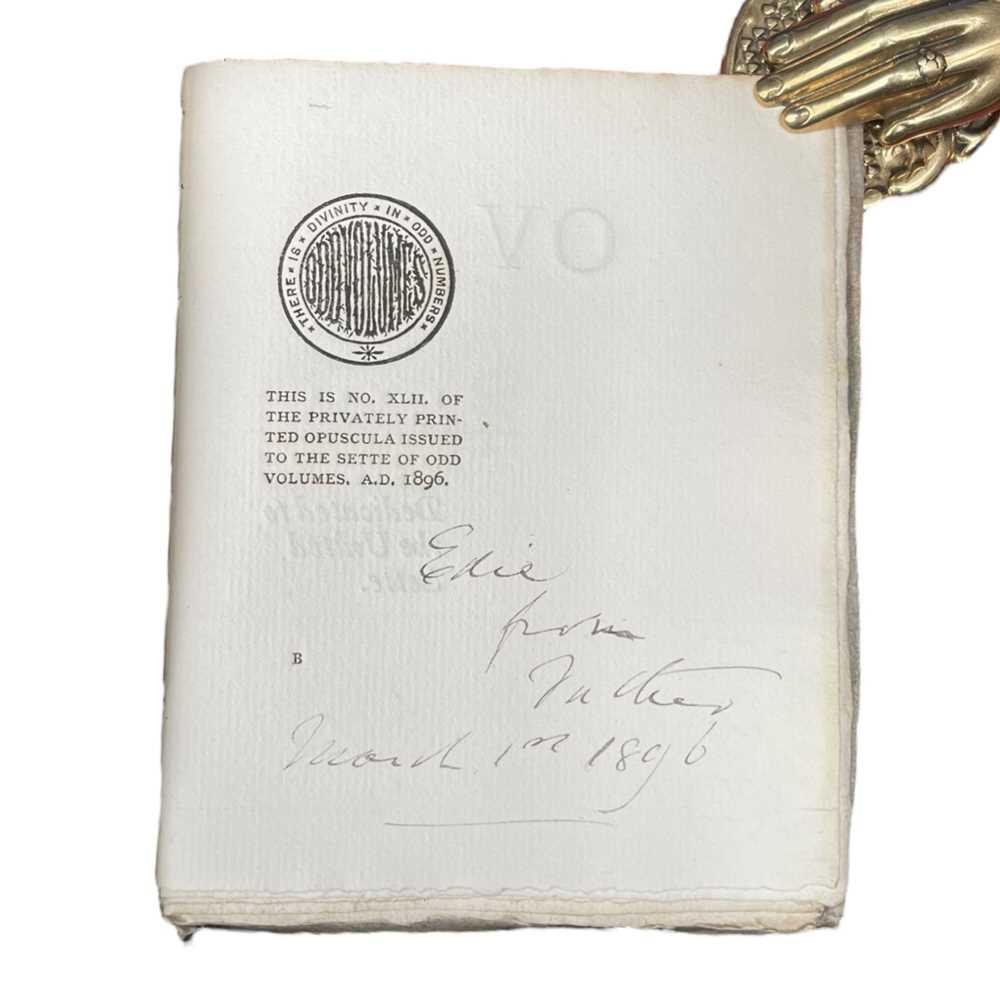 THERE × IS × DIVINITY × IN × ODD × NUMBERS
ODD VOLUMES
OV
THIS IS NO. XLII. OF
THE PRIVATELY PRIN-
TED OPUSCULA ISSUED
TO THE SETTE OF ODD
VOLUMES. A.D. 1896.
Dedicated to
the United
Sette.
Edie
from
Father
B
March 1st 1896